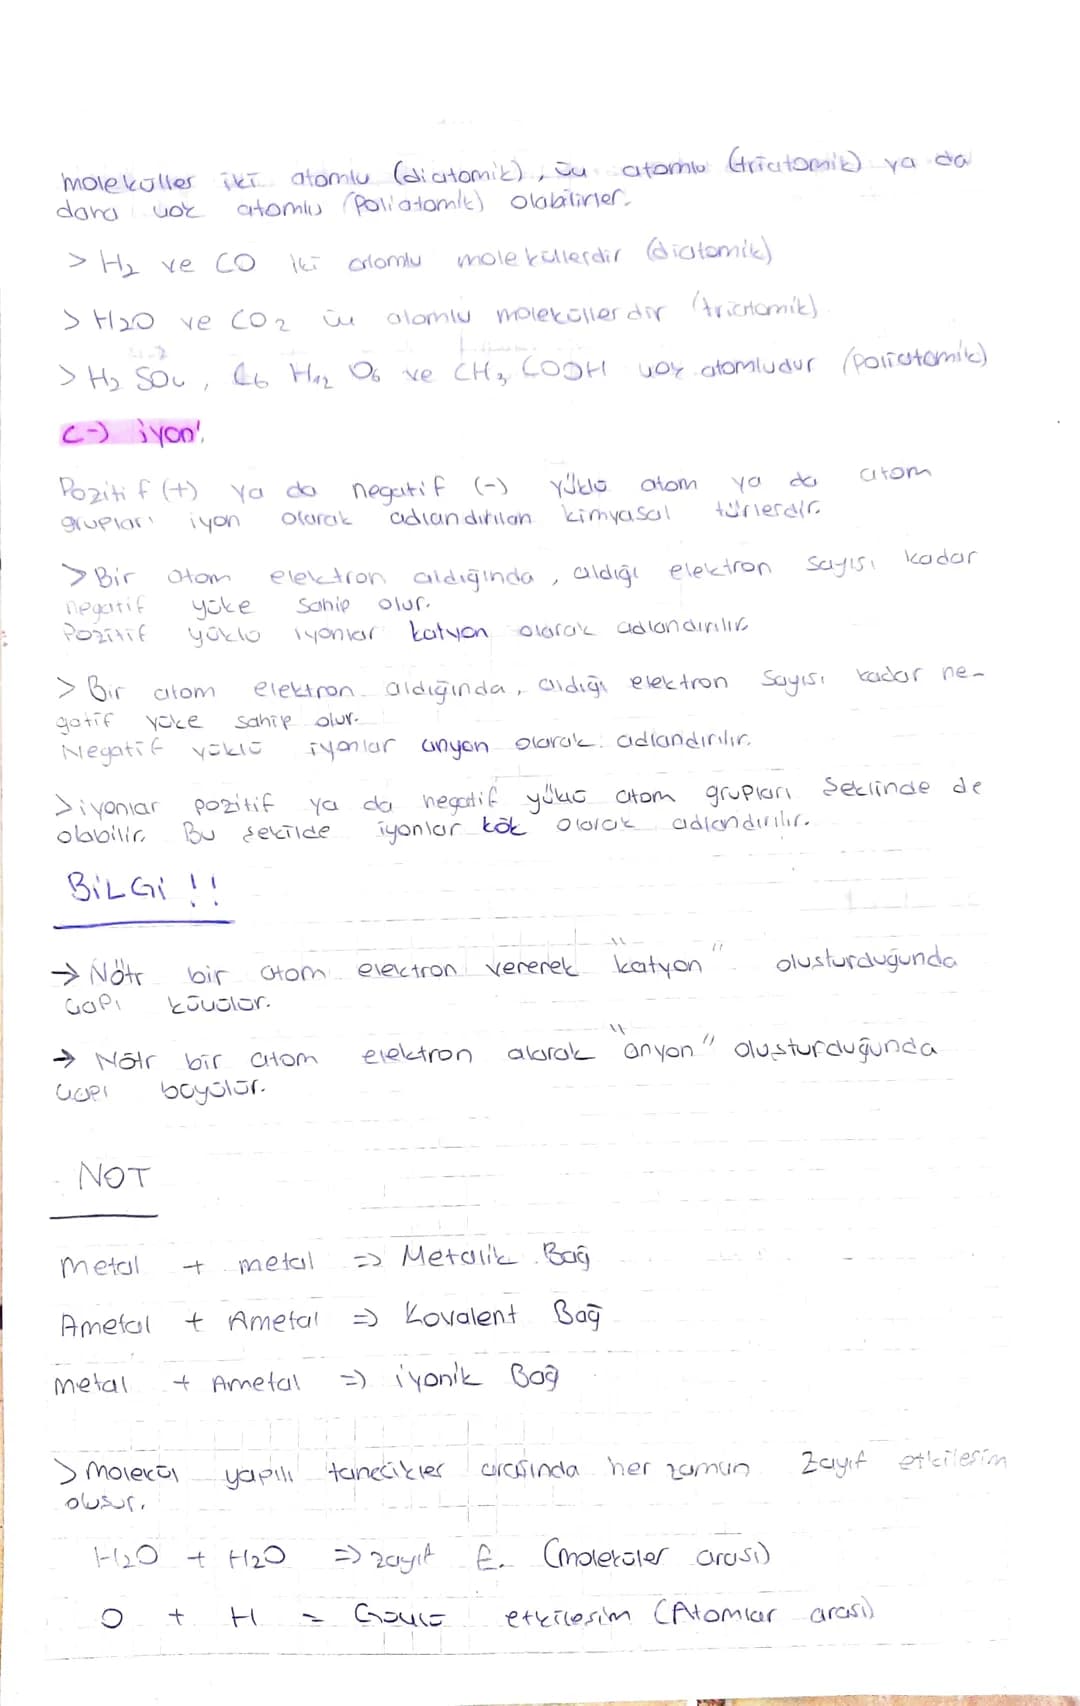 moleküller iki atomlu (diatomik), üç atomlu (triatomik) ya da
daha çok atomlu (poliatomik) olabilirler.
> H₂ ve CO iki atomlu moleküllerdir (diatomik)
> H₂O ve CO₂ üç atomlu moleküllerdir (triatomik)
> H₂ SO₄, C₆ H₁₂ O₆ ve CH₃ COOH çok atomludur (poliatomik)
c-) iyon:
Pozitif (+) ya da negatif (-) yüklü atom ya da atom
grupları iyon olarak adlandırılan kimyasal türlerdir.
> Bir atom elektron aldığında, aldığı elektron sayısı kadar
negatif yüke sahip olur.
Pozitif yüklü iyonlar katyon olarak adlandırılır
> Bir atom elektron aldığında, aldığı elektron sayısı kadar ne-
gatif yüke sahip olur.
Negatif yüklü iyonlar anyon olarak adlandırılır.
> iyonlar pozitif ya da negatif yüklü atom grupları şeklinde de
olabilir. Bu şekilde iyonlar kök olarak adlandırılır.
BiLGi !!
→ Nötr bir atom elektron vererek "katyon" oluşturduğunda
çapı küçülür.
→ Nötr bir atom elektron alarak "anyon" oluşturduğunda
çapı büyülür.
NOT
metal + metal => Metalik Bağ
Ametal + Ametal => Kovalent Bağ
metal + Ametal => iyonik Bağ
> Molekül yapılı tanecikler arasında her zaman zayıf etkilesim
olusur.
H₂O + H₂O => zayıf E. (moleküler arası)
O + H = Güçlü etkilesim (Atomlar arası)